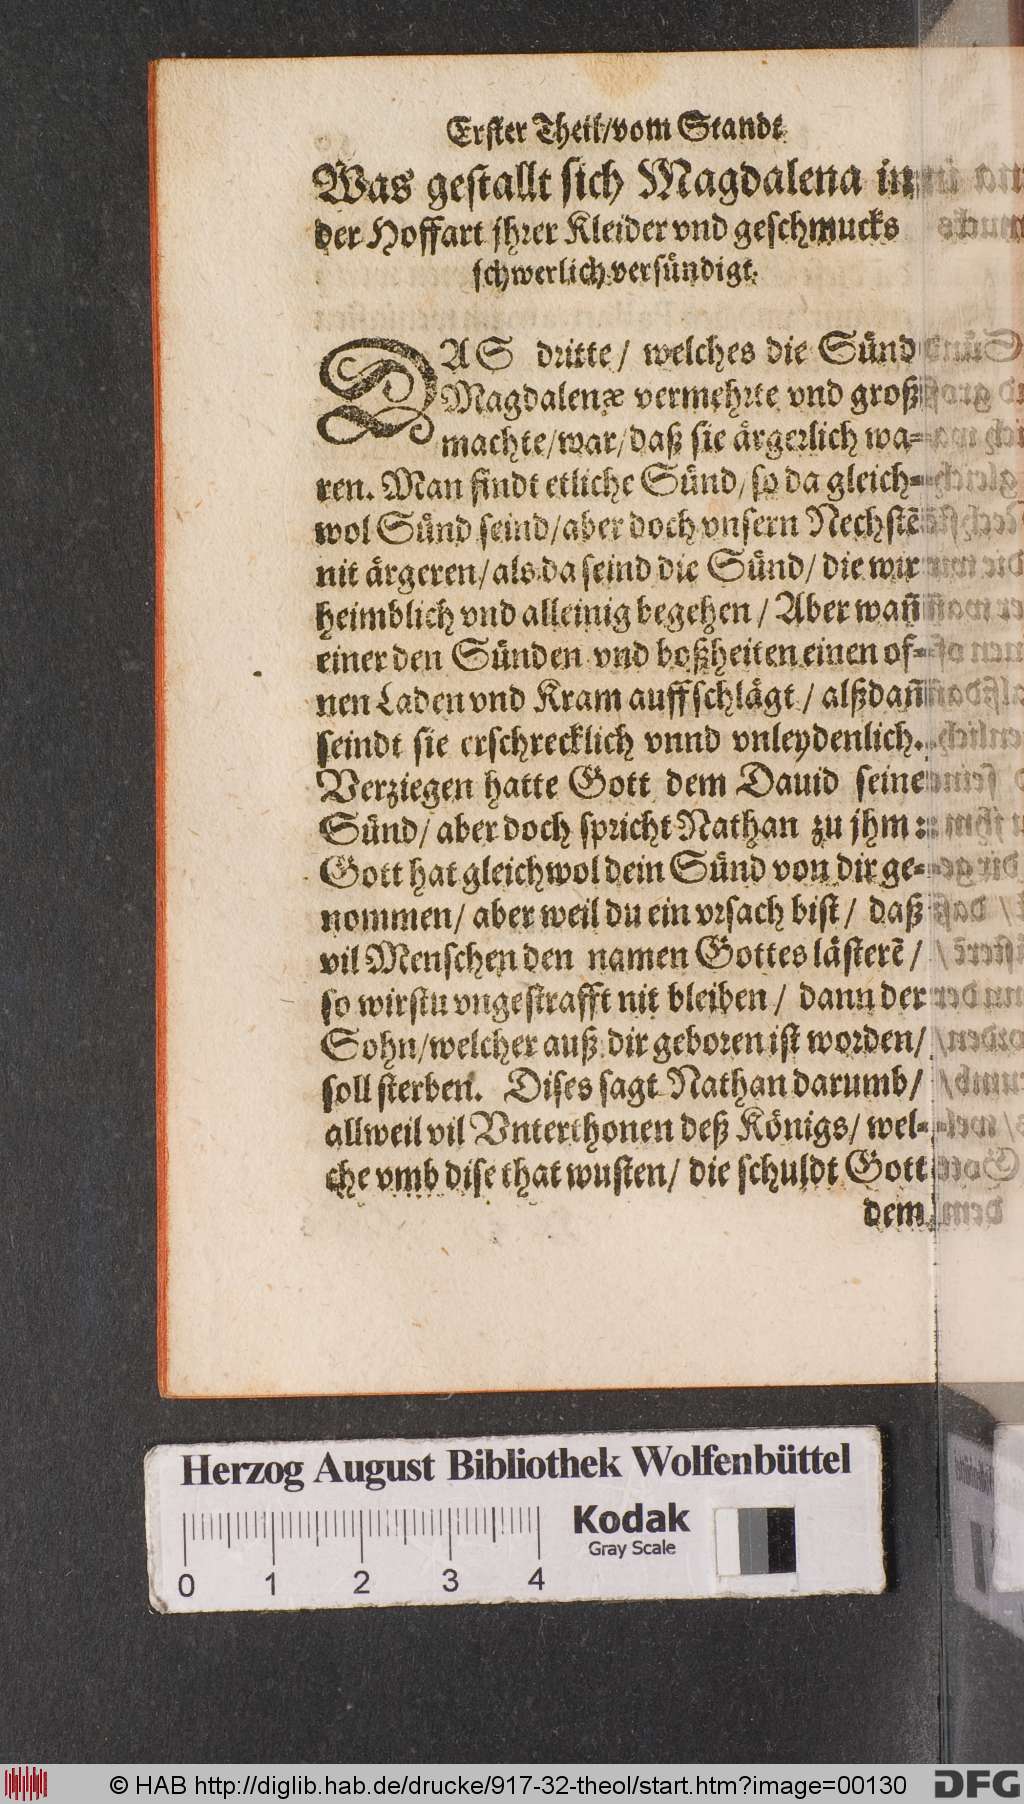 Erster Theil/vom Standt
Was gestallt sich Magdalena in
der Hoffart jhrer Kleider vnd geschmucks
schwerlich versündigt.
DAS dritte/ welches die Sünd
Magdalenæ vermehrte vnd groß
machte/war/daß sie ärgerlich wa-
ren. Man findt etliche Sünd/so da gleich-
wol Sünd seind/aber doch vnsern Nechstẽ
nit ärgeren/als da seind die Sünd/ die wir
heimblich vnd alleinig begehen/ Aber wañ
einer den Sünden vnd boßheiten einen of-
nen Laden vnd Kram auffschlägt/ alßdañ
seindt sie erschrecklich vnnd vnleydenlich.
Verziegen hatte Gott dem Dauid seine
Sünd/ aber doch spricht Nathan zu jhm:
Gott hat gleichwol dein Sünd von dir ge-
nommen/ aber weil du ein vrsach bist/ daß
vil Menschen den namen Gottes lästerẽ/
so wirstu vngestrafft nit bleiben/ dann der
Sohn/welcher auß dir geboren ist worden/
soll sterben. Dises sagt Nathan darumb/
allweil vil Vnterthonen deß Königs/ wel-
che vmb dise that wusten/ die schuldt Gott
dem
Herzog August Bibliothek Wolfenbüttel
Kodak
Gray Scale
0 1 2 3 4
© HAB http://diglib.hab.de/drucke/917-32-theol/start.htm?image=00130
DFG